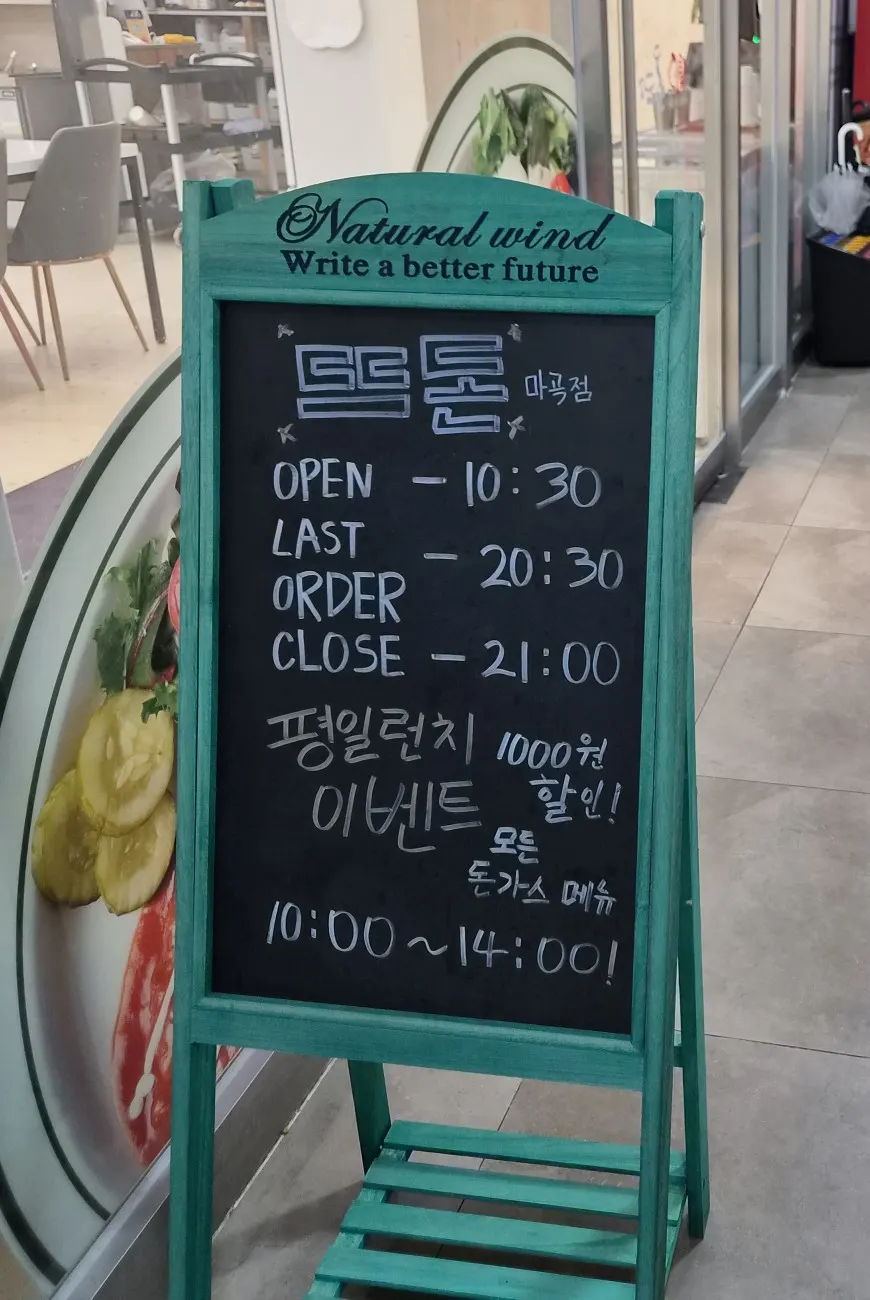 Natural wind
Write a better future
뜨돈 마곡점
OPEN – 10:30
LAST
ORDER – 20:30
CLOSE – 21:00
평일런치
이벤트
1000원
할인!
모든
돈가스 메뉴
10:00~14:00!